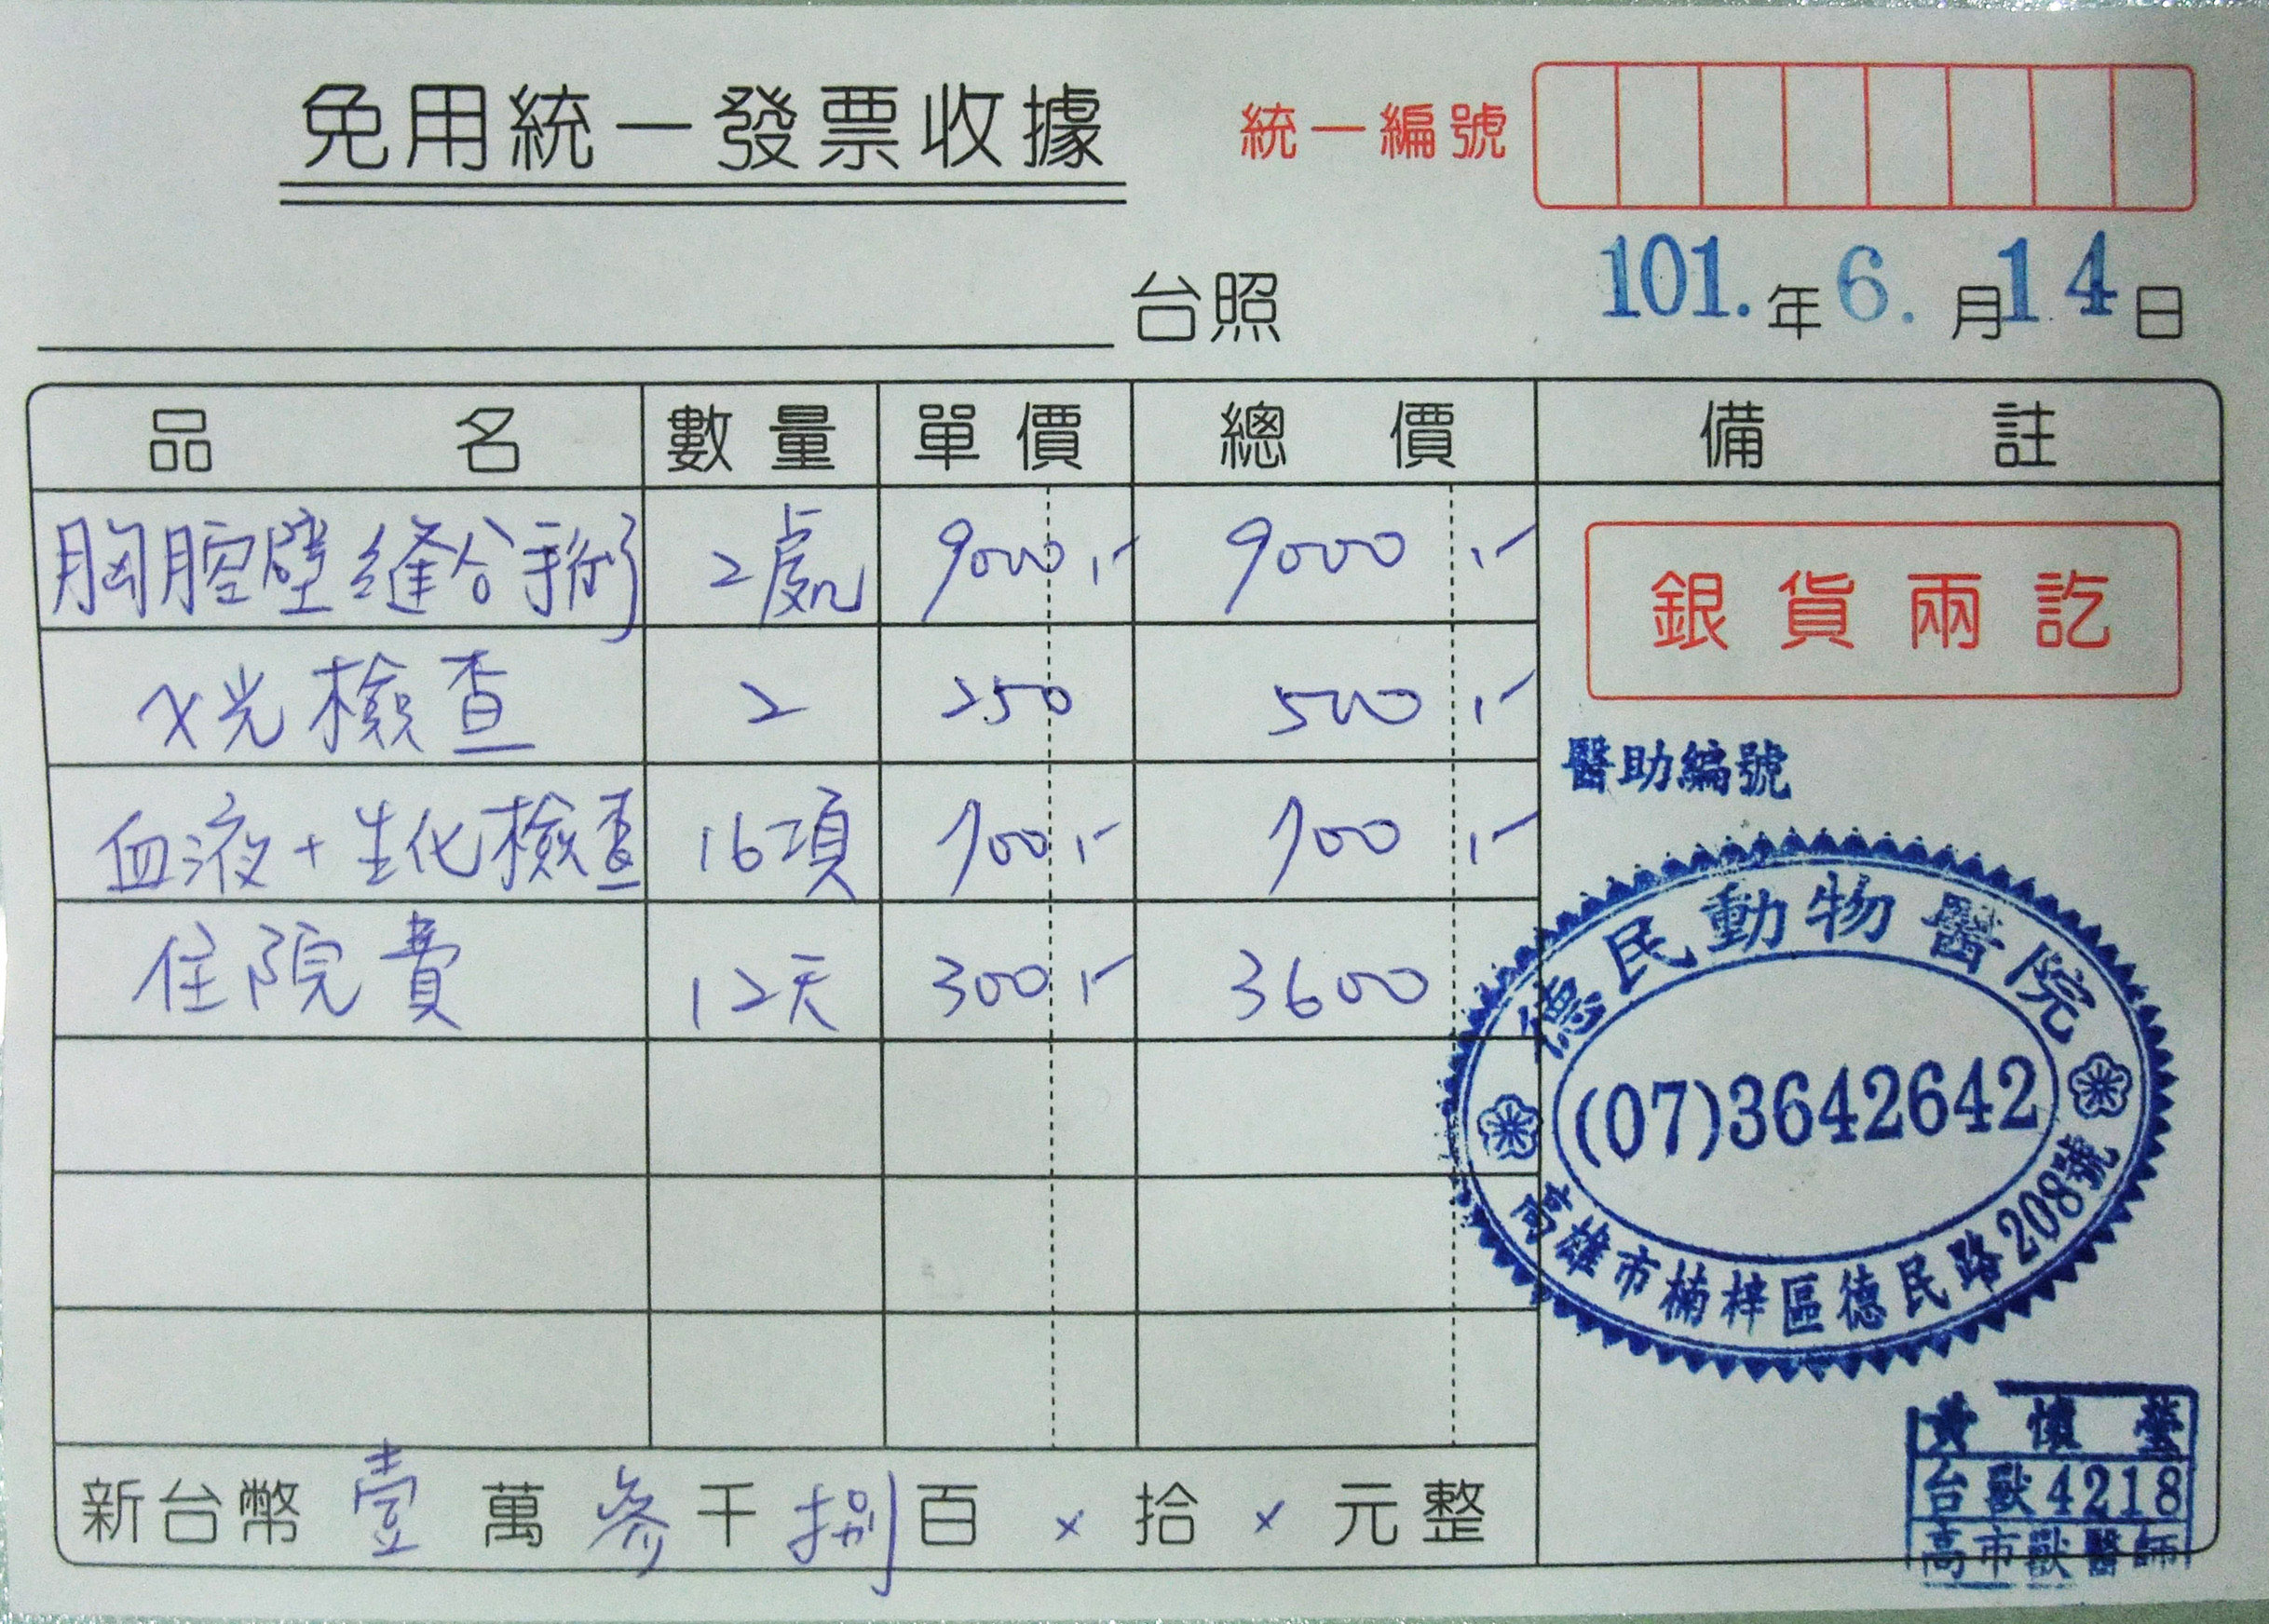 免用統一發票收據 統一編號
台照 101.年6.月14日
品名 數量 單價 總價 備註
胸腔壁縫合手術 2處 9000,- 9000,-
銀貨兩訖
X光檢查 2 250 500,-
醫助編號
血液+生化檢查 16項 700,- 700,-
住院費 12天 300,- 3600
德民動物醫院
(07)3642642
高雄市楠梓區德民路208號
新台幣壹萬參千捌百×拾×元整
黃懷瑩
台獸4218
高市獸醫師